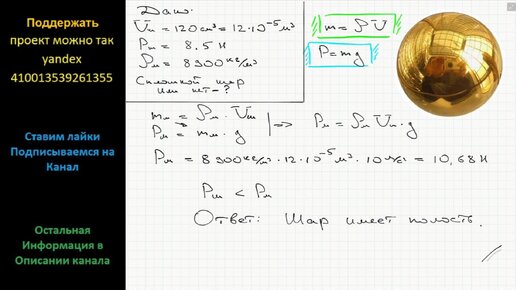 Поддержать
проект можно так
yandex
410013539261355
Ставим лайки
Подписываемся на
Канал
Остальная
Информация в
Описании канала
Дано:
Vм = 120 см³ = 12·10⁻⁵ м³
Pш = 8.5 Н
ρм = 8900 кг/м³
Сплошной шар
или нет - ?
m = ρV
P = mg
mм = ρм · Vш
Pм = mм · g | => Pм = ρм Vм · g
Pм = 8900 кг/м³ · 12·10⁻⁵ м³ · 10 м/с² = 10,68 Н
Pш < Pм
Ответ: Шар имеет полость.